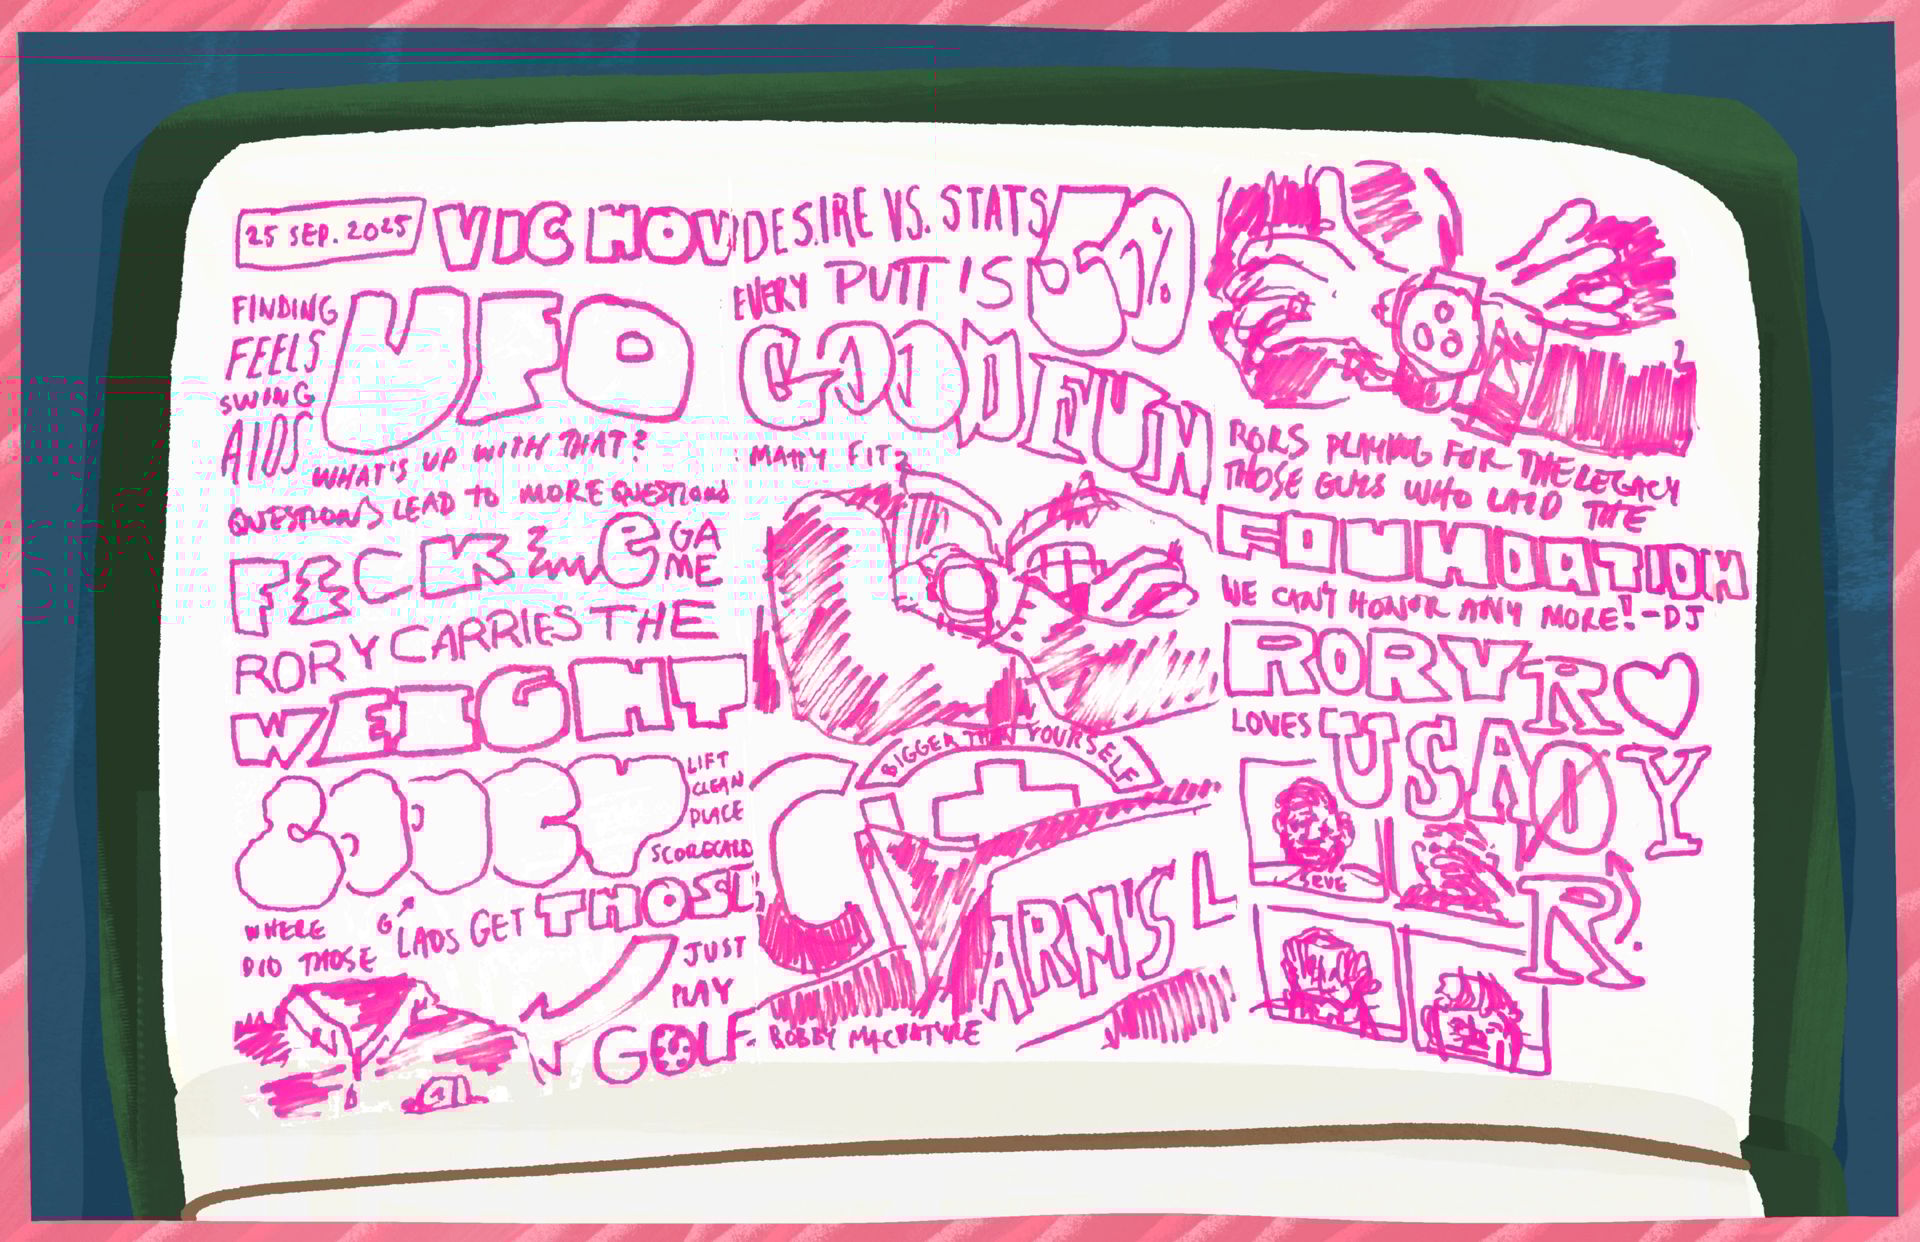 25 SEP. 2025
VIC HOV
FINDING
FEELS
SWING
AIDS
UFO
WHAT'S UP WITH THAT?
QUESTIONS LEAD TO MORE QUESTIONS
GA
ME
RORY CARRIES THE
WEIGHT
LIFT
CLEAN
PLACE
SCORECARD
WHERE
DID THOSE
LADS GET THOSE
JUST
PLAY
GOLF.
DESIRE VS. STATS
50%
EVERY PUTT IS
GOOD FUN
MATTY FITZ
BIGGER THAN YOURSELF
ARMS L
BOBBY MACINTYRE
RORS PLAYING FOR THE LEGACY
THOSE GUYS WHO LAID THE
FOUNDATION
WE CAN'T HONOR ANY MORE! -DJ
RORY
LOVES USA
R♡
ØY
R.